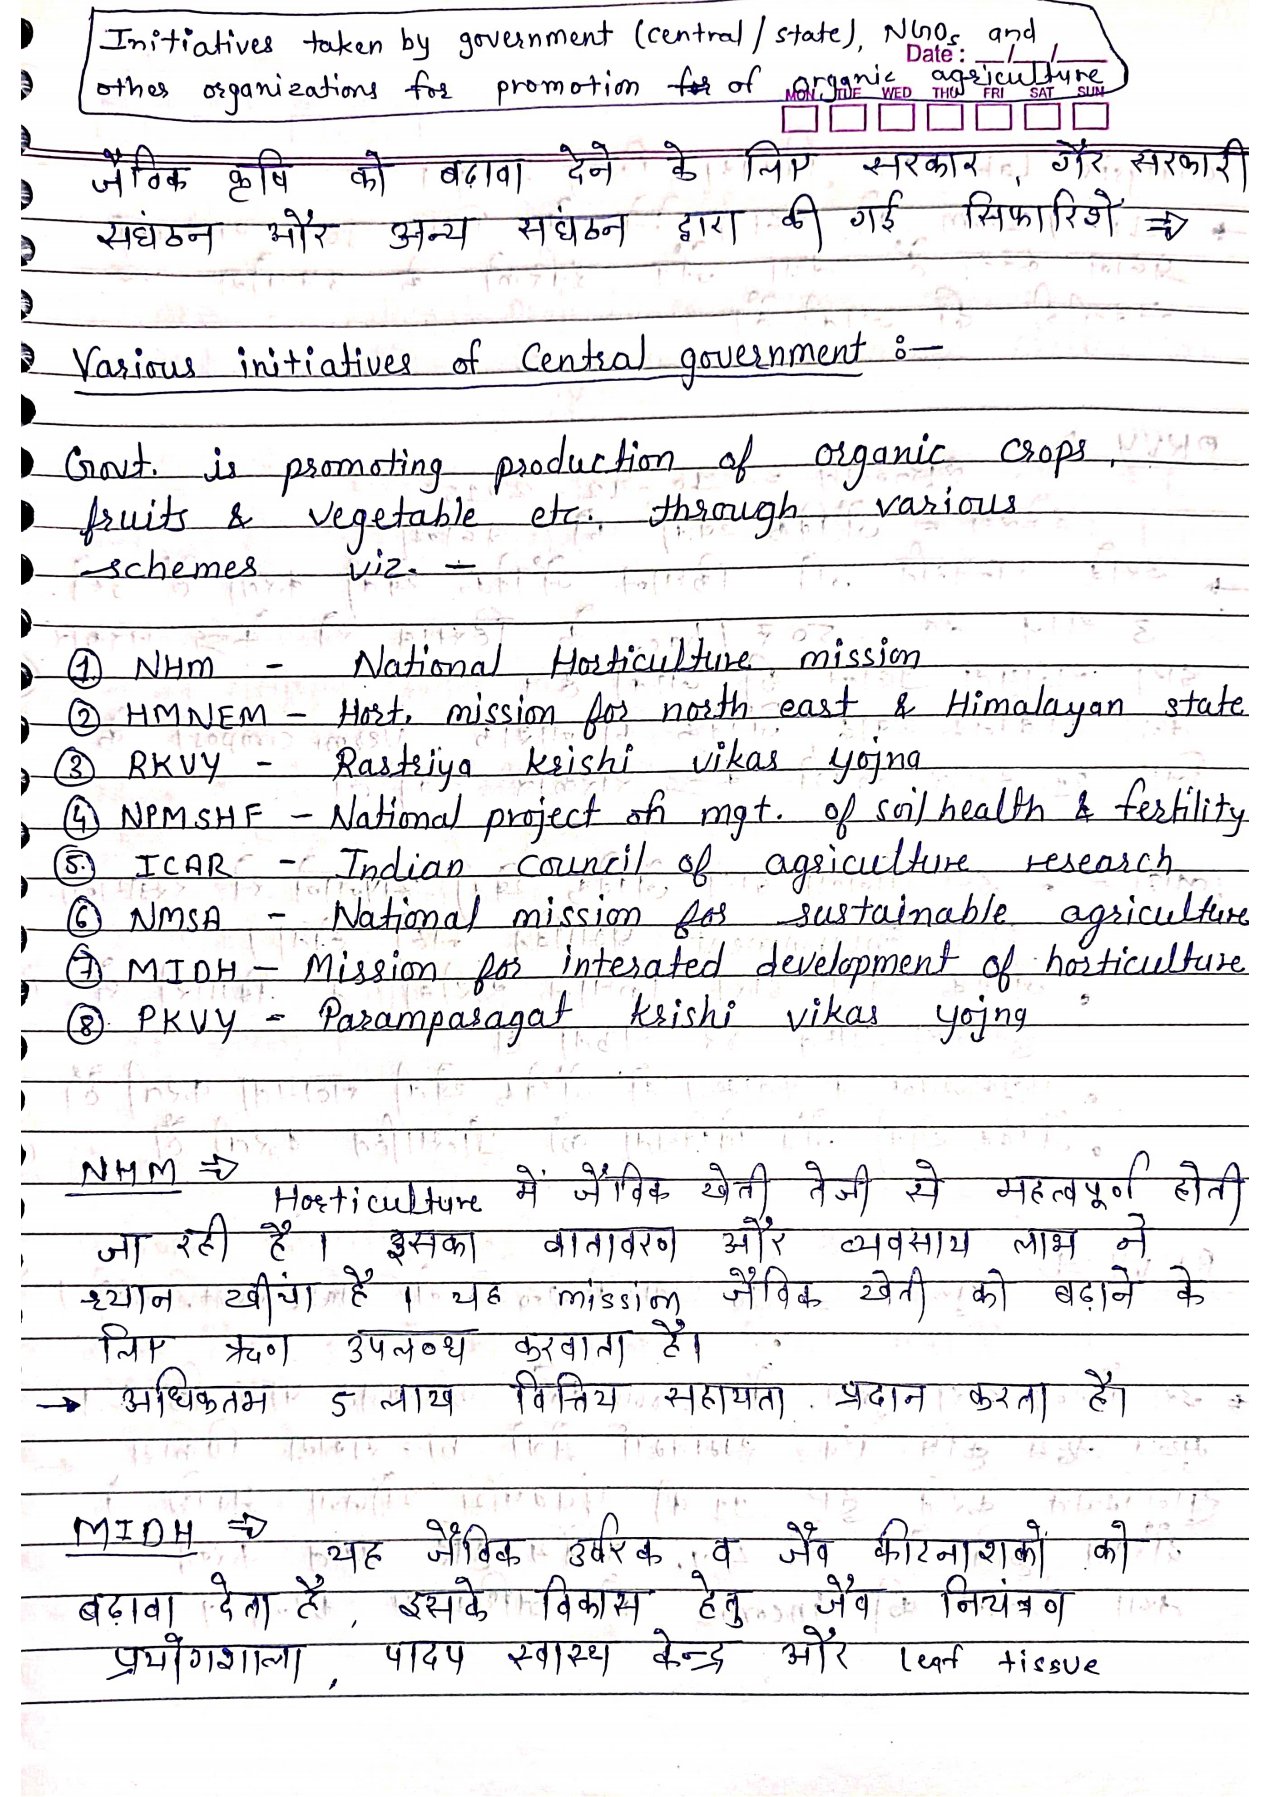 Initiatives taken by government (central/state), NGOs and
Date : __/__/__
other organizations for promotion for of organic agriculture
MON TUE WED THU FRI SAT SUN
जैविक कृषि को बढावा देने के लिए सरकार, गैर सरकारी
संघंठन और अन्य संघंठन द्वारा की गई सिफारिशें ⇒
Various initiatives of Central government :—
Govt. is promoting production of organic crops,
fruits & vegetable etc. through various
schemes viz. —
① NHM - National Horticulture mission
② HMNEM - Hort. mission for north east & Himalayan state
③ RKVY - Rastriya krishi vikas yojna
④ NPMSHF - National project on mgt. of soil health & fertility
⑤ ICAR - Indian council of agriculture research
⑥ NMSA - National mission for sustainable agriculture
⑦ MIDH - Mission for interated development of horticulture
⑧ PKVY - Paramparagat krishi vikas yojna
NHM ⇒
Horticulture में जैविक खेती तेजी से महत्वपूर्ण होती
जा रही है। इसका वातावरण और व्यवसाय लाभ ने
ध्यान खींचा है। यह mission जैविक खेती को बढ़ाने के
लिए ऋण उपलब्ध करवाता है।
→ अधिकतम 5 लाख वित्तिय सहायता प्रदान करता है।
MIDH ⇒
यह जैविक उर्वरक व जैव कीटनाशकों को
बढ़ावा देता है, इसके विकास हेतु जैव नियंत्रण
प्रयोगशाला, पादप स्वास्थ केन्द्र और leaf tissue